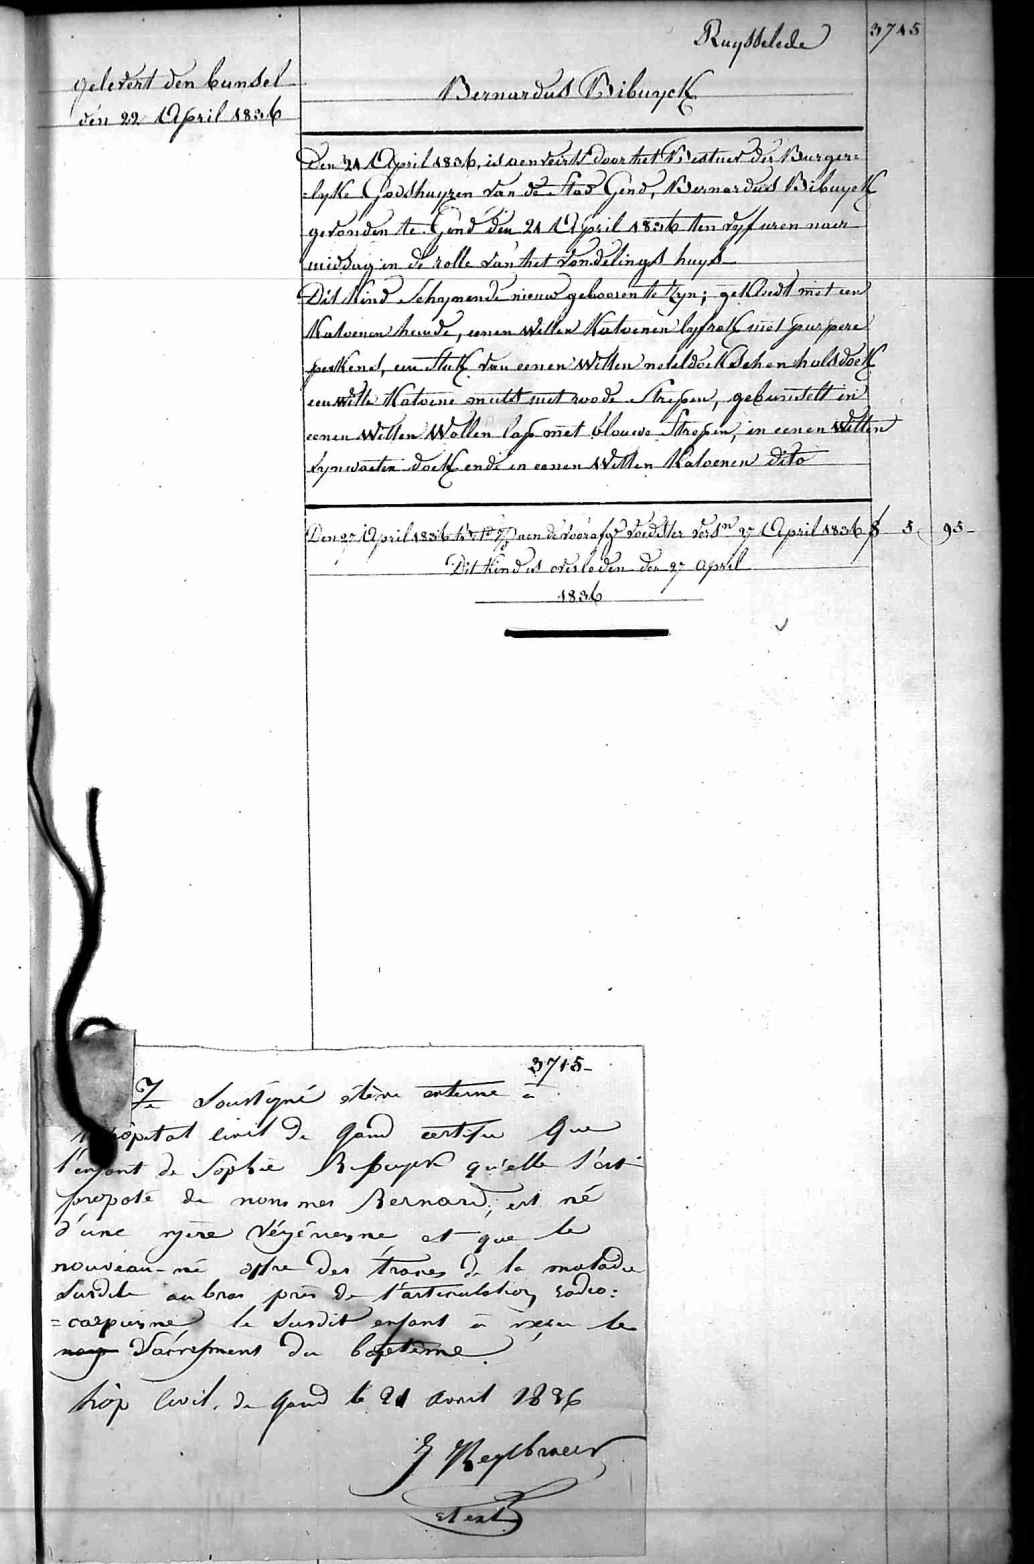 Ruysselede
3715
gelevert den bunsel
den 22 April 1836
Bernardus Bibuyck
Den 21 April 1836, is aenveirt door het Bestuer der Burger=
=lyke Godshuyzen van de Stad Gend, Bernardus Bibuyck
gevonden te Gend den 21 April 1836 ten vyf uren naer
middag in de rolle van het vondelings huys
Dit kind schynende nieuw gebooren te zyn; gekleedt met een
Katoenen hemde, eenen witten Katoenen lyfrok met purpere
perkens, een stuk van eenen witten neteldoekschen halsdoek
een witte Katoene muts met roode Strepen, gebunselt in
eenen witten Wollen lap met blouwe Strepen, in eenen witten
lynwaeten doek ende in eenen Witten Katoenen dito
Den 27 April 1836 aen de voedster 27 April 1836 5 95-
Dit kind is overleden den 27 April
1836
3715-
Je soussigné élève externe à
l'hôpital civil de Gand certifie que
l'enfant de Sophie qu'elle s'est
proposé de nommer Bernard, est né
d'une mère vénérienne et que le
nouveau-né offre des traces de la maladie
susdite au bras près de l'articulation radio=
=carpienne le susdit enfant a reçu le
Sacrement du baptême.
hôp civil. de Gand le 21 avril 1836